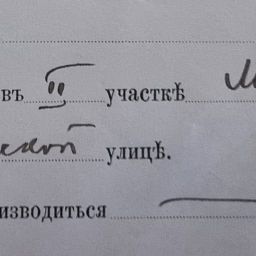 въ II участкѣ
ской улицѣ.
изводиться